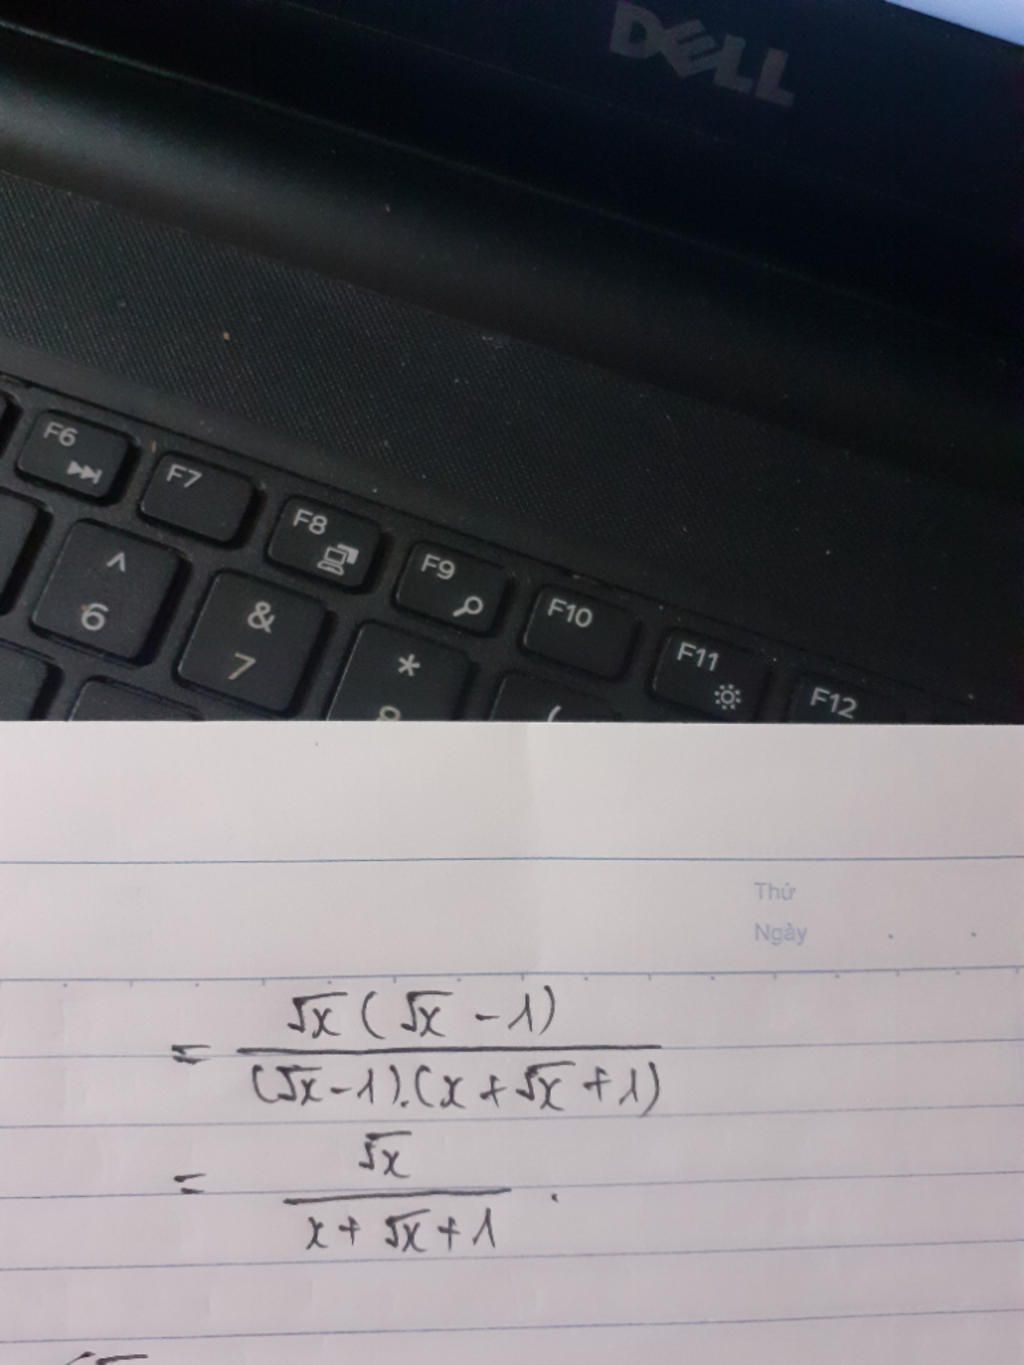 DELL
F6 F7 F8 F9 F10 F11 F12
^ & * (
6 7
Thứ
Ngày
= √x(√x - 1) / (√x - 1).(x + √x + 1)
= √x / x + √x + 1 .